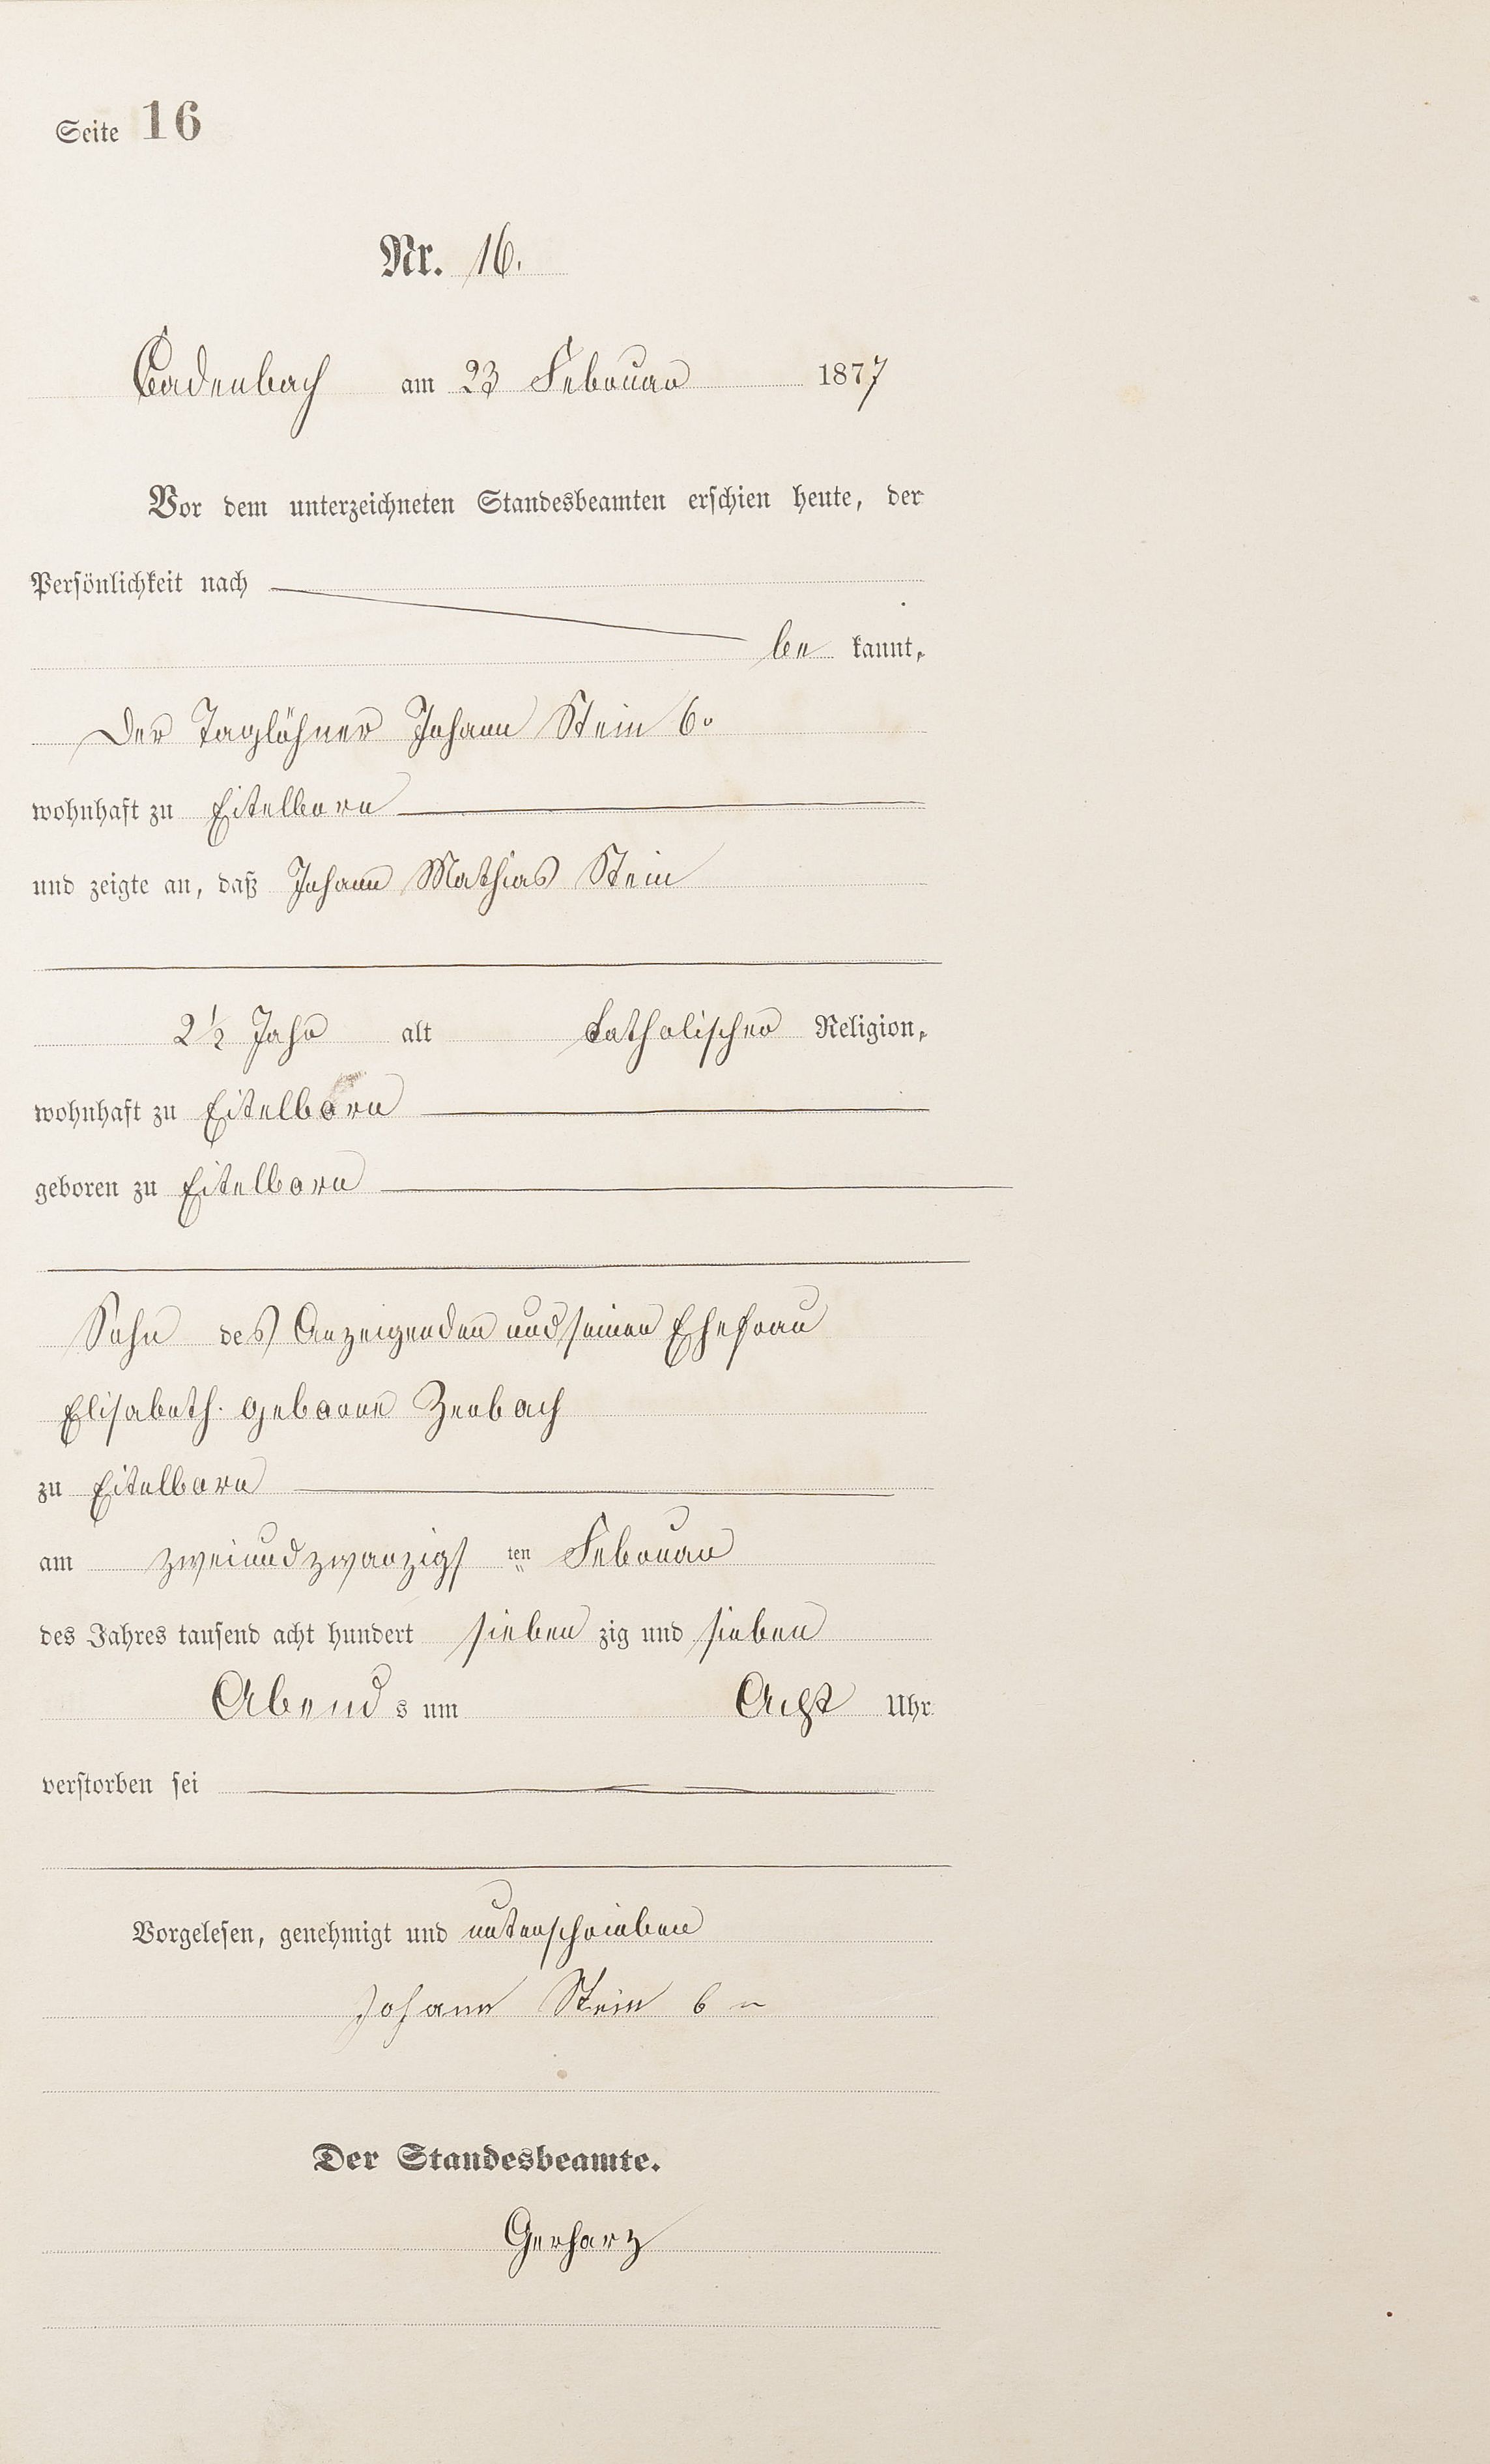 Seite 16
Nr. 16.
Cadenbach am 23 Februar 1877
Vor dem unterzeichneten Standesbeamten erschien heute, der
Persönlichkeit nach
be kannt,
Der Taglöhner Johann Stein 6r
wohnhaft zu Eitelborn
und zeigte an, daß Johann Mathias Stein
2½ Jahr alt katholischer Religion,
wohnhaft zu Eitelborn
geboren zu Eitelborn
Sohn des Anzeigenden und seiner Ehefrau
Elisabeth. geborne Zerbach
zu Eitelborn
am zweiundzwanzigsten Februar
des Jahres tausend acht hundert sieben zig und sieben
Abend s um Acht Uhr
verstorben sei
Vorgelesen, genehmigt und unterschrieben
Johann Stein 6r
Der Standesbeamte.
Gerharz